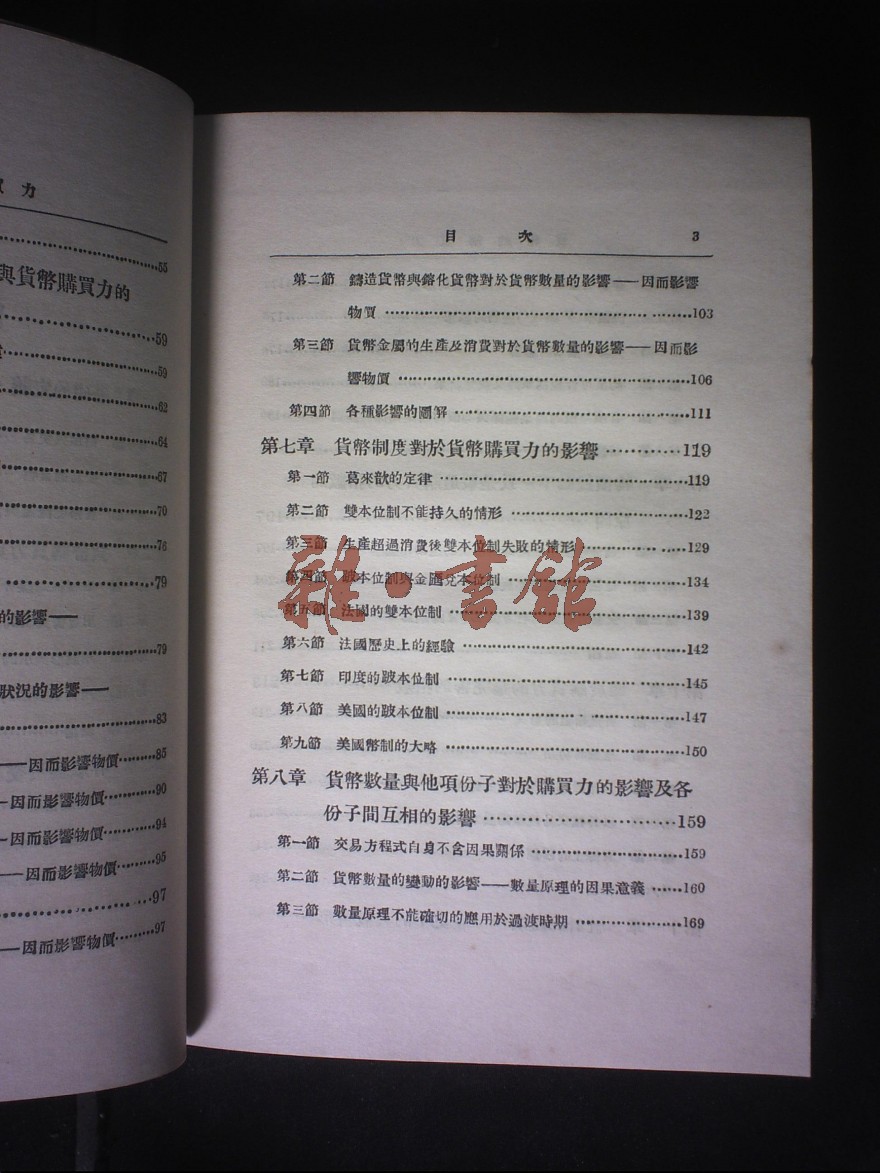 力
55
與貨幣購買力的
59
59
62
64
67
70
76
79
的影響——
79
狀況的影響——
83
——因而影響物價 85
——因而影響物價 90
——因而影響物價 94
——因而影響物價 95
97
——因而影響物價 97
目 次 3
第二節 鑄造貨幣與鎔化貨幣對於貨幣數量的影響——因而影響
物價 103
第三節 貨幣金屬的生產及消費對於貨幣數量的影響——因而影
響物價 106
第四節 各種影響的圖解 111
第七章 貨幣制度對於貨幣購買力的影響 119
第一節 葛來歆的定律 119
第二節 雙本位制不能持久的情形 122
第三節 生產超過消費後雙本位制失敗的情形 129
第四節 跛本位制與金匯兌本位制 134
第五節 法國的雙本位制 139
第六節 法國歷史上的經驗 142
第七節 印度的跛本位制 145
第八節 美國的跛本位制 147
第九節 美國幣制的大略 150
第八章 貨幣數量與他項份子對於購買力的影響及各
份子間互相的影響 159
第一節 交易方程式自身不含因果關係 159
第二節 貨幣數量的變動的影響——數量原理的因果意義 160
第三節 數量原理不能確切的應用於過渡時期 169
雜·書館